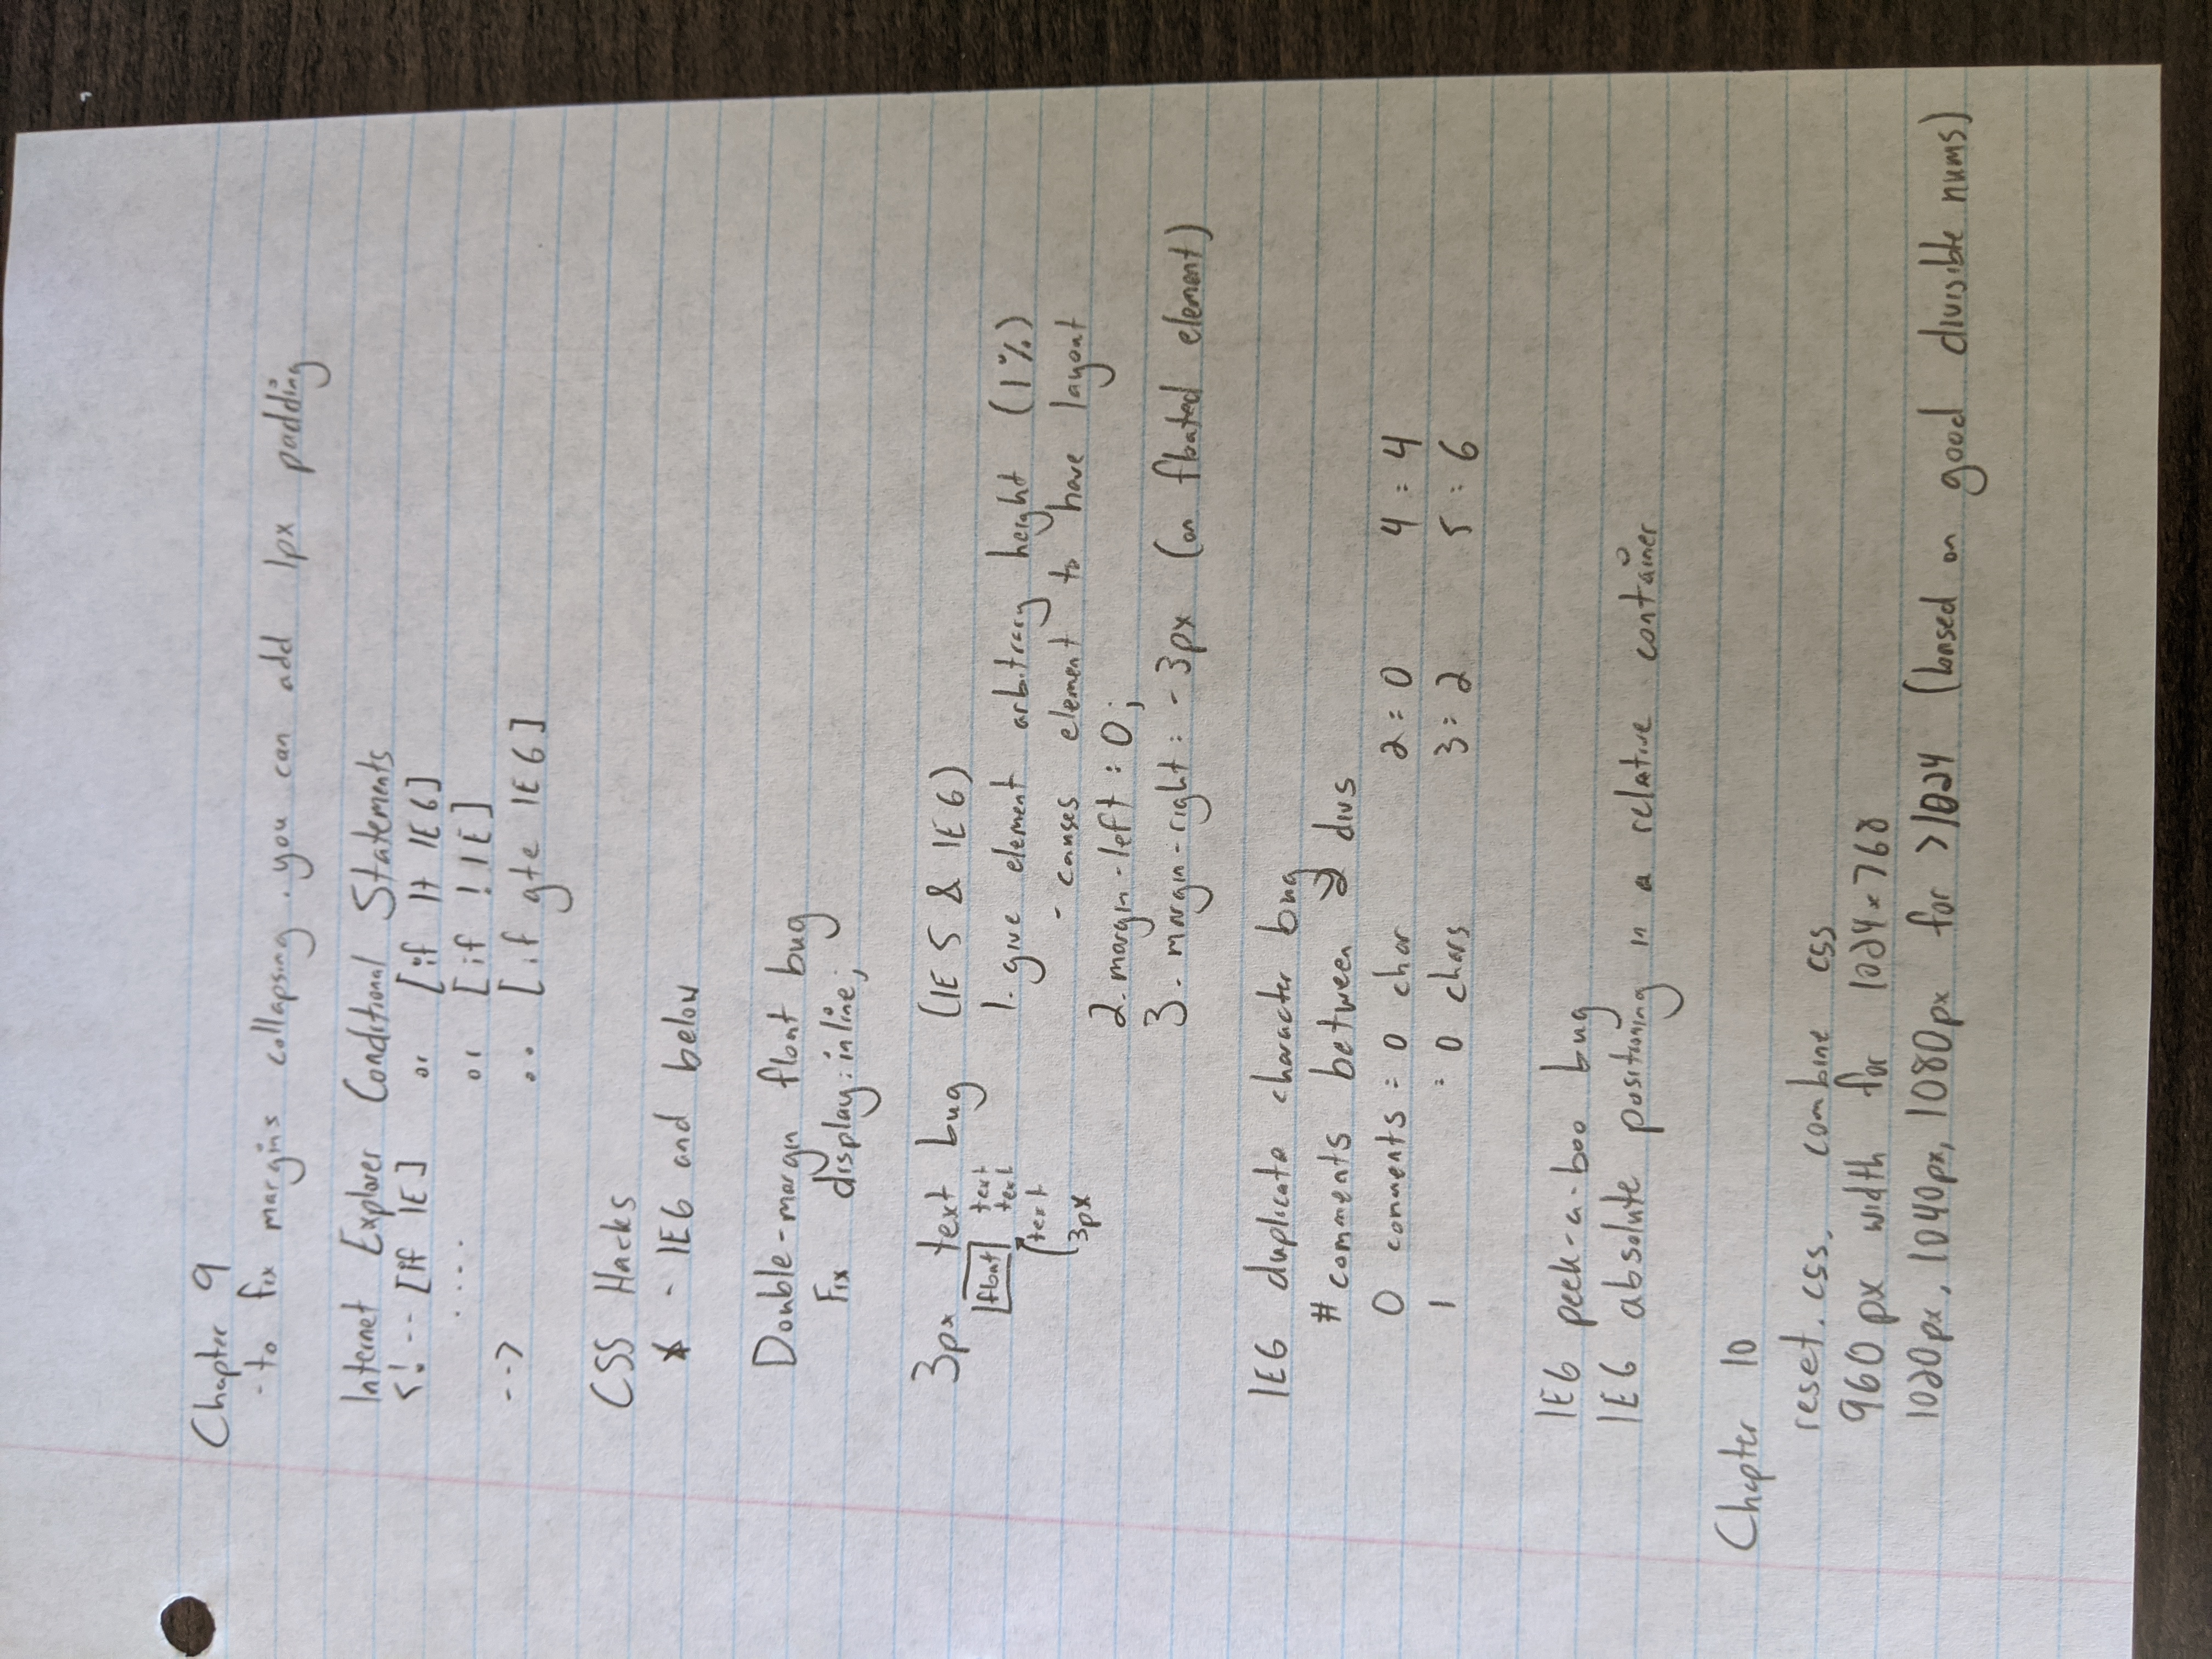 Chapter 9
- to fix margins collapsing. you can add 1px padding
Internet Explorer Conditional Statements
<!-- [if IE] or [if lt IE6]
.... or [if !IE]
--> .. [if gte IE6]
CSS Hacks
* - IE6 and below
Double-margin float bug
Fix display:inline;
3px text bug (IE 5 & IE 6)
float text
text
text
3px
1. give element arbitrary height (1%)
- causes element to have layout
2. margin-left: 0;
3. margin-right: -3px (on floated element)
IE6 duplicate character bug
# comments between 2 divs
0 comments: 0 char 2:0 4:4
1 : 0 chars 3:2 5:6
IE6 peek-a-boo bug
IE6 absolute positioning in a relative container
Chapter 10
reset.css. combine css
960px width for 1024x768
1020px, 1040px, 1080px for >1024 (based on good divisible nums)